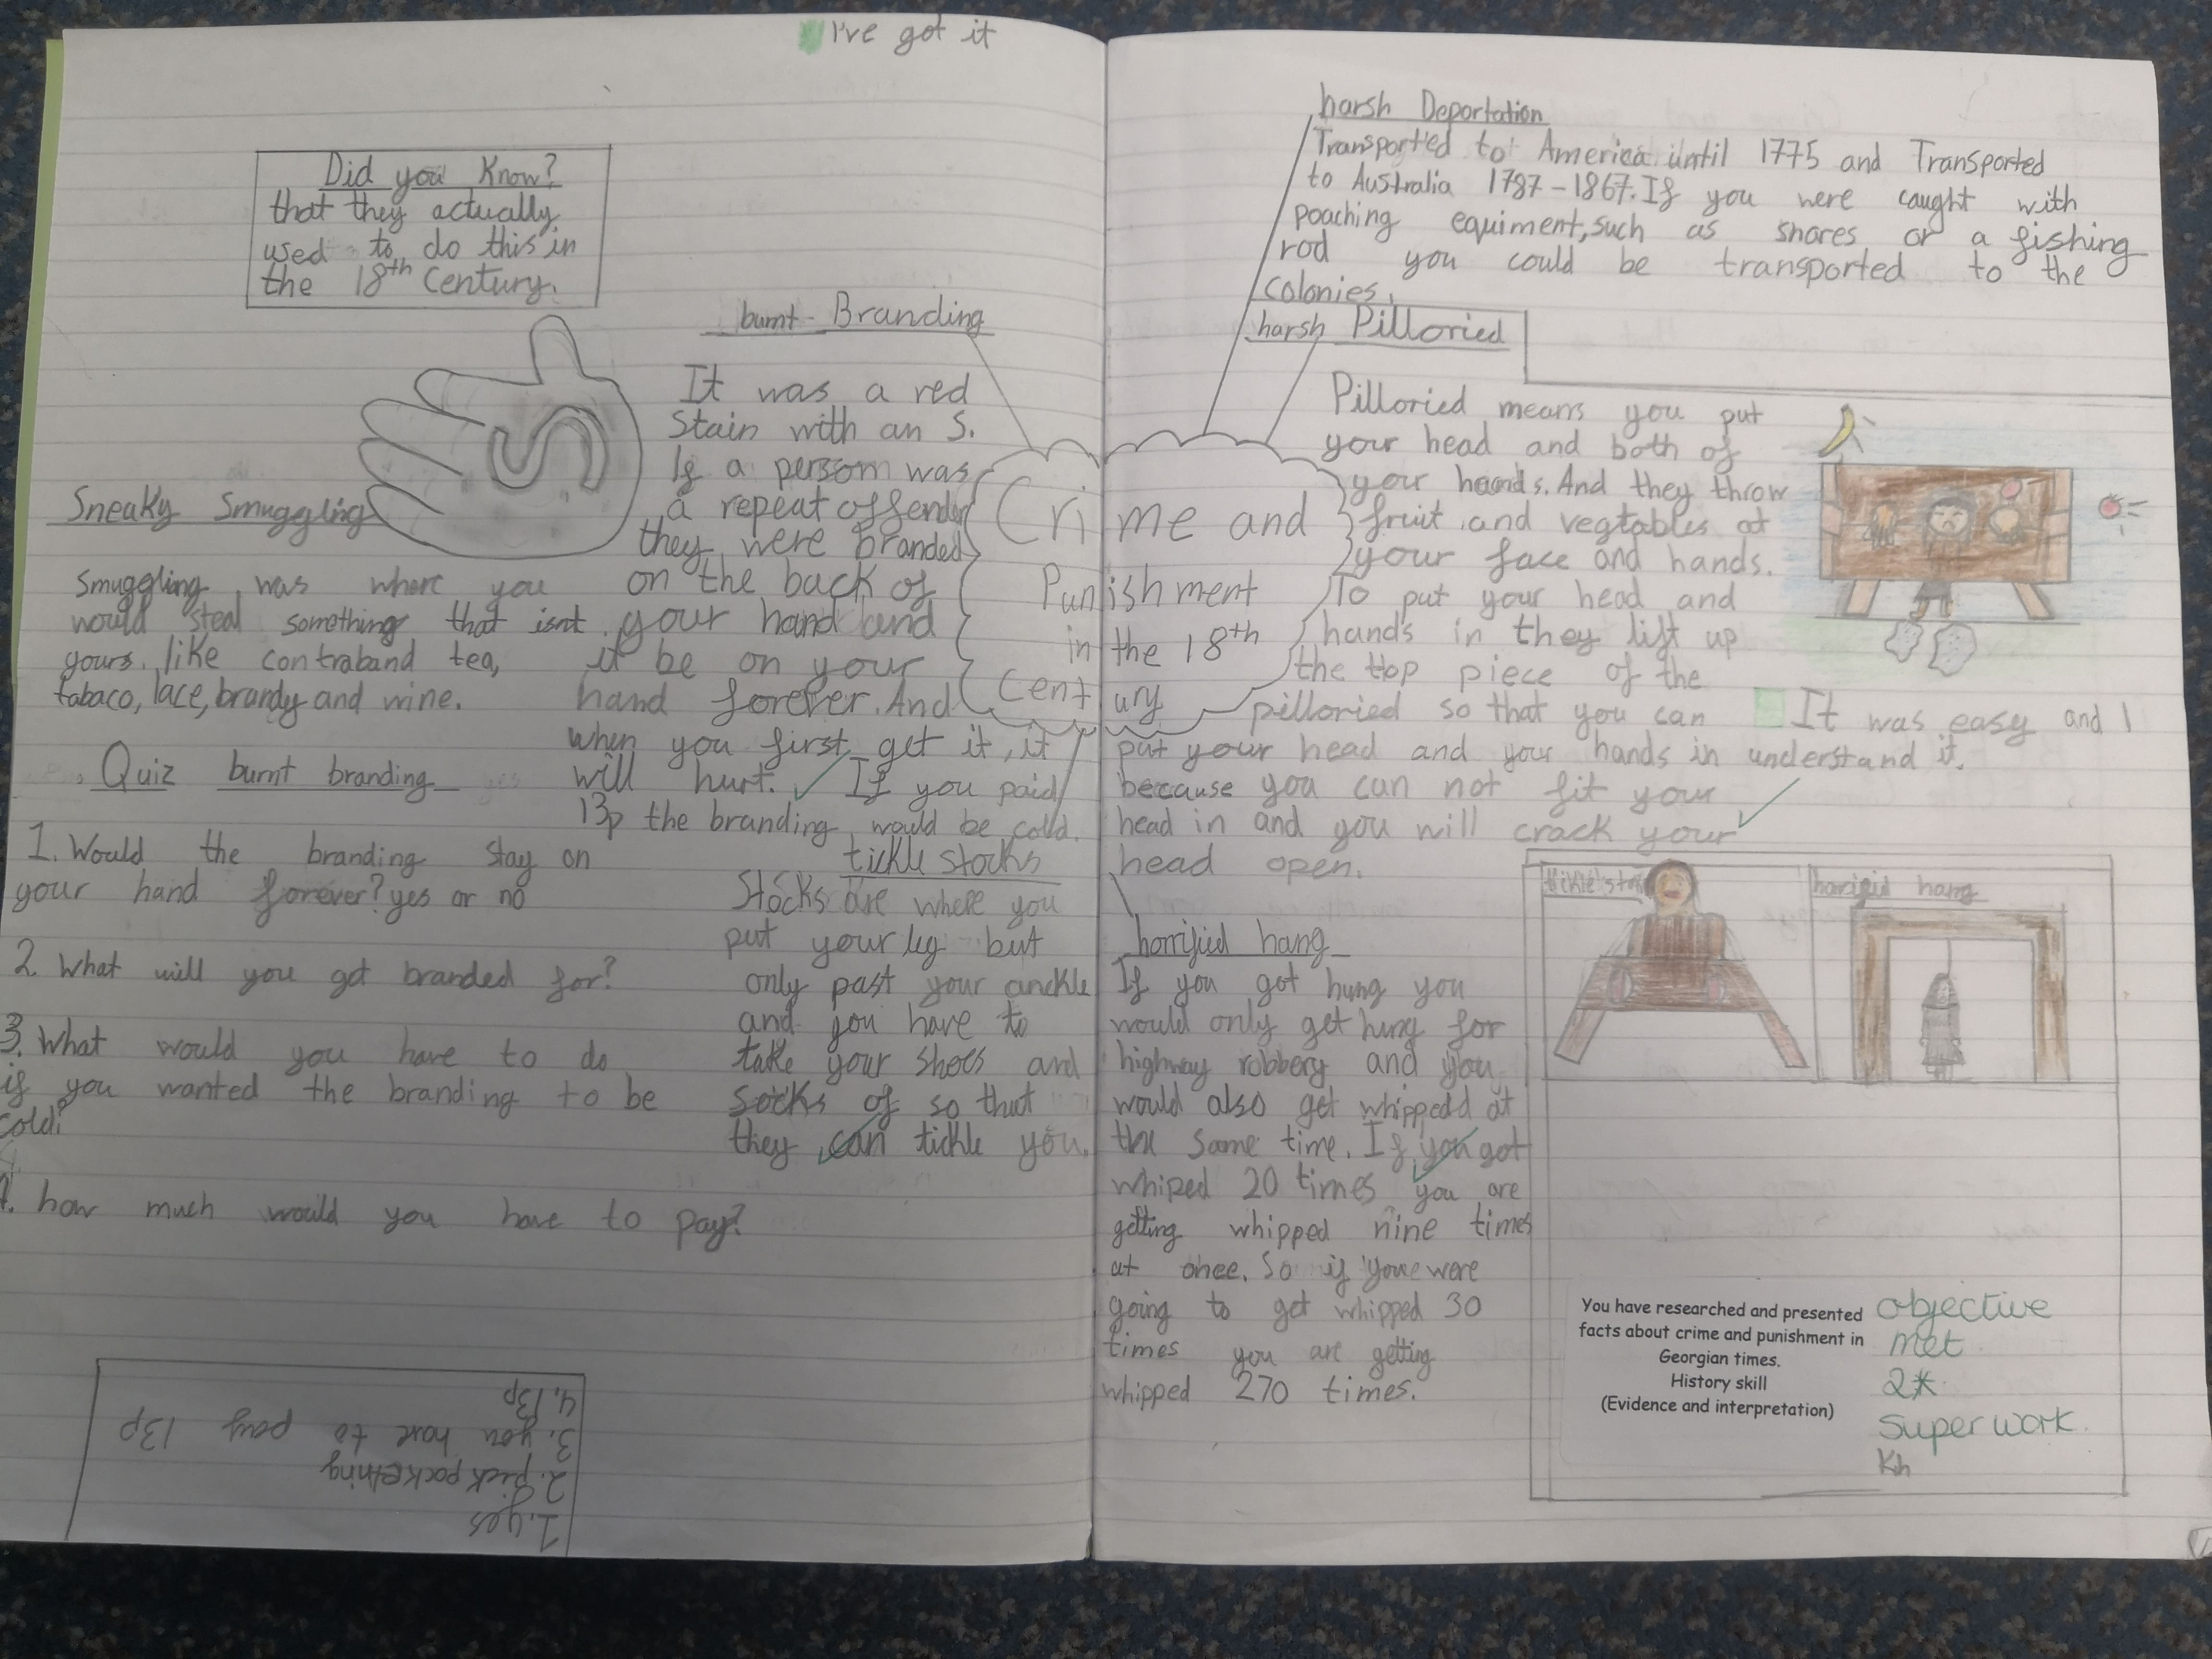 I've got it
Did you Know?
that they actually
used to do this in
the 18th Century.
burnt - Branding
It was a red
Stain with an S.
If a persom was
a repeat offender
they were branded
on the back of
your hand and
it be on your
hand forever. And
when you first get it, it
will hurt. If you paid
13p the branding would be cold.
Sneaky Smuggling
Smuggling was where you
would steal something that isnt
yours. like contraband tea,
tabaco, lace, brandy and wine.
Quiz burnt branding
1. Would the branding stay on
your hand forever? yes or no
2. What will you get branded for?
3. What would you have to do
if you wanted the branding to be
cold?
4. how much would you have to pay?
1. yes
2. pick pocketning
3. you have to pay 13p
4. 13p
tickle stocks
Stocks are where you
put your leg but
only past your anckle
and you have to
take your shoes and
socks of so that
they can tickle you.
Crime and
Punishment
in the 18th
Century
harsh Deportation
Transported to America until 1775 and Transported
to Australia 1787-1867. If you were caught with
poaching equiment, such as snares or a fishing
rod you could be transported to the
colonies.
harsh Pilloried
Pilloried means you put
your head and both of
your hands. And they throw
fruit and vegtables at
your face and hands.
To put your head and
hands in they lift up
the top piece of the
pilloried so that you can
put your head and your hands in
because you can not fit your
head in and you will crack your
head open.
It was easy and I
understand it.
horrified hang
If you got hung you
would only get hung for
highway robbery and you
would also get whippedd at
the same time. If you got
whiped 20 times you are
getting whipped nine times
at once. So if you were
going to get whipped 30
times you are getting
whipped 270 times.
tickle stocks
horrified hang
You have researched and presented
facts about crime and punishment in
Georgian times.
History skill
(Evidence and interpretation)
objective
met
2*
Super work.